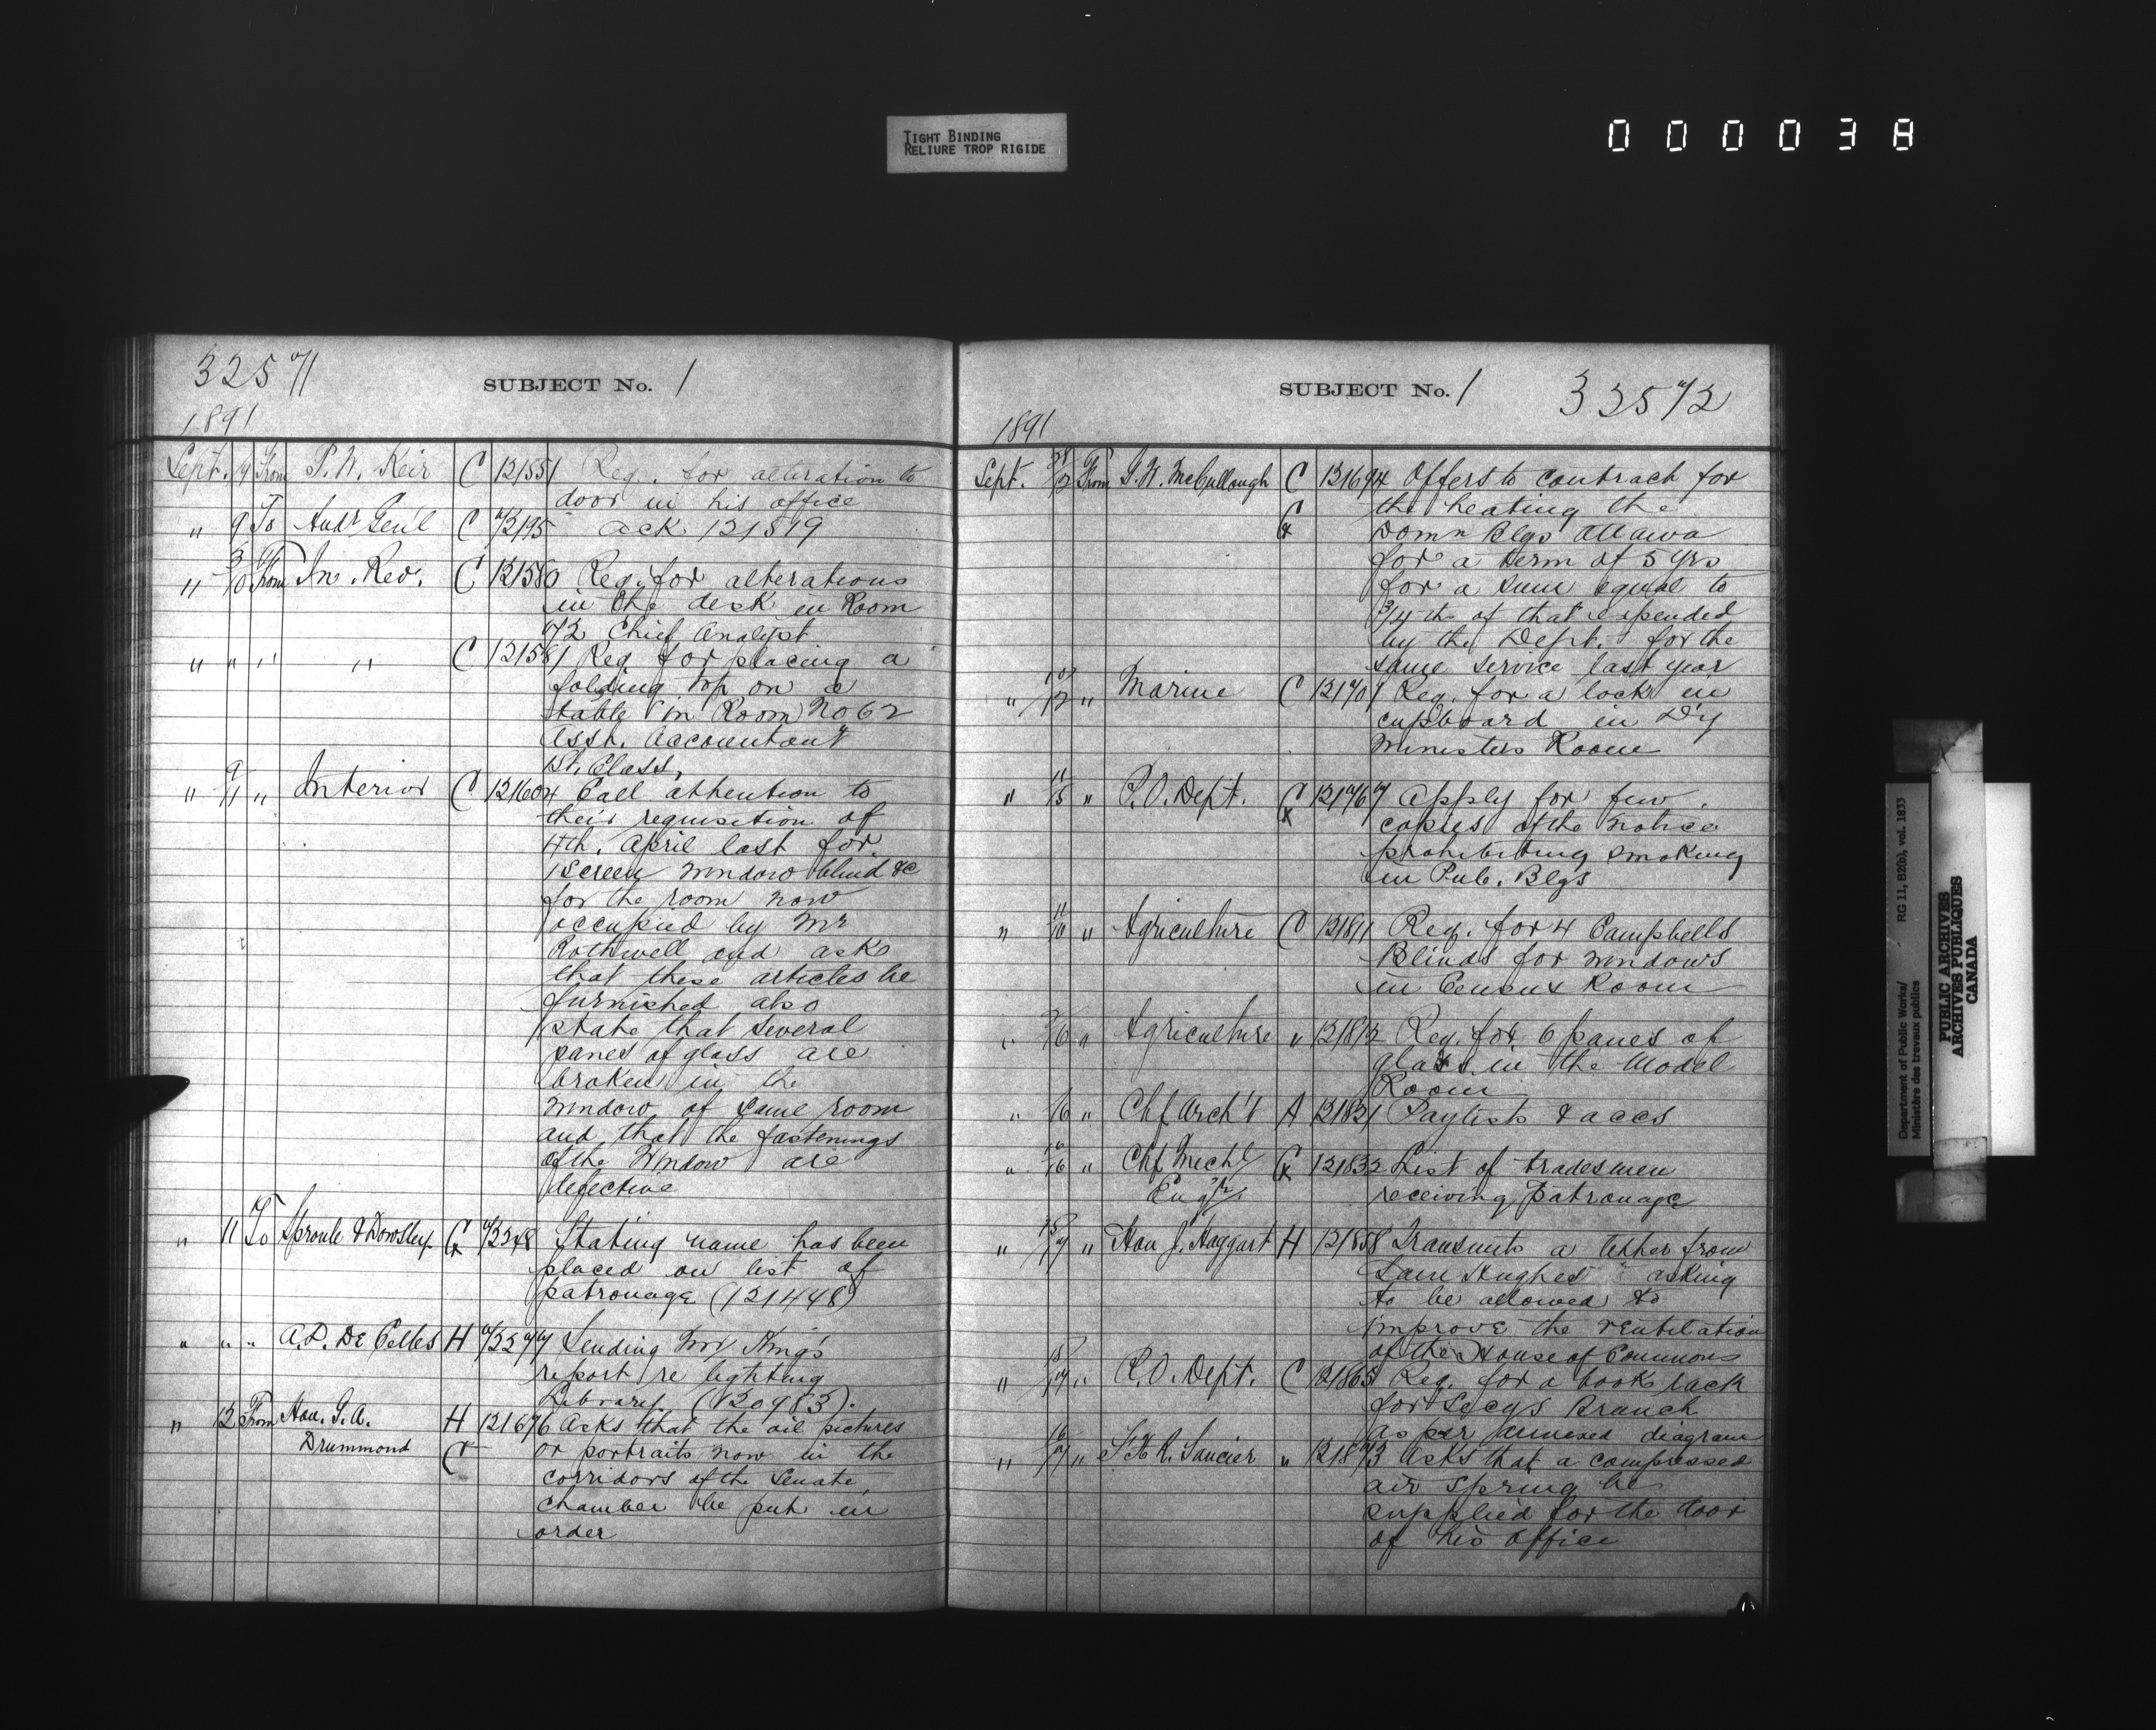 TIGHT BINDING
RELIURE TROP RIGIDE
000038
32571
SUBJECT No. 1
1891
Sept. 9 From P. N. Keir C 121551 Req. for alteration to
door in his office
" 9 To Audr Gen'l C 72195 ack 121519
" 3/10 From In. Rev. C 121580 Req. for alterations
in the desk in Room
72 Chief Analyst
" " " " C 121581 Req for placing a
folding top on a
table in Room No 62
Asst. Accountant
1st. Class,
" 9/11 " Interior C 121604 Call attention to
their requisition of
4th. April last for
1 Screen window blind &c
for the room now
occupied by Mr
Rothwell and asks
that these articles be
furnished also
state that several
panes of glass are
broken in the
window of same room
and that the fastenings
of the window are
defective
" 11 To Sproule & Dowsley C 72248 Stating name has been
placed on list of
patronage (121448)
" " " A.D. De Celles H 72277 Sending Mr King's
report re lighting
Library (120983).
" 12 From Hon. G. A. H 121676 Asks that the oil pictures
Drummond C or portraits now in the
corridors of the Senate
chamber be put in
order
SUBJECT No. 1
33572
1891
Sept. 12 From McCullough C 121694 Offers to contract for
the heating the
Domn Blgs Ottawa
for a term of 5 yrs
for a sum equal to
3/4ths of that expended
by the Dept. for the
same service last year
" 10/12 " Marine C 121701 Req. for a lock in
cupboard in D'y
Ministers Room
" 11/15 " P.O. Dept. C 121767 Apply for few
copies of the notice
prohibiting smoking
in Pub. Blgs
" 11/16 " Agriculture C 121811 Req. for 4 Campbells
Blinds for windows
in Census Room
" 16 " Agriculture " 121812 Req. for 6 panes of
glass in the Model
Room
" 16 " Chf Arch't A 121831 Paylists & accs
" 16/16 " Chf Mechl C 121832 List of tradesmen
Engr. receiving patronage
" 15/17 " Hon J. Haggart H 121858 Transmits a letter from
Sam Hughes asking
to be allowed to
improve the ventilation
of the House of Commons
" 15/17 " P.O. Dept. C 121865 Req. for a book rack
for Secys Branch
as per annexed diagram
" 16/17 " St. R. Saucier " 121873 Asks that a compressed
air spring be
supplied for the door
of his office
Department of Public Works/
Ministère des travaux publics
RG 11, B2(b), vol. 1833
PUBLIC ARCHIVES
ARCHIVES PUBLIQUES
CANADA